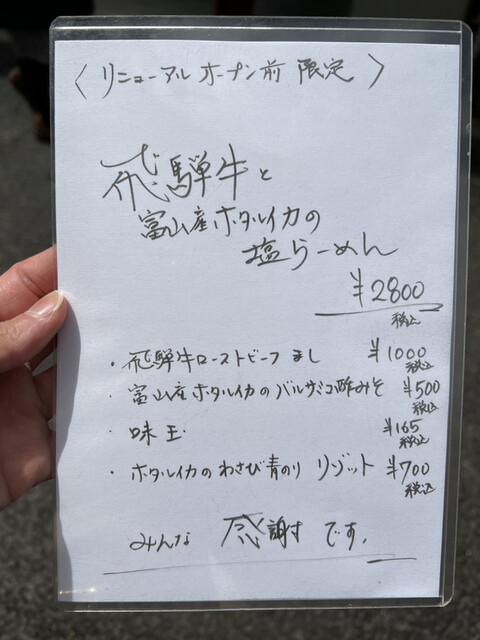 〈リニューアルオープン前 限定〉
飛騨牛と
富山産ホタルイカの
塩らーめん
¥2800
税込
・飛騨牛ローストビーフまし ¥1000
税込
・富山産ホタルイカのバルサミコ酢みそ ¥500
税込
・味玉 ¥165
税込
・ホタルイカのわさび青のり リゾット ¥700
税込
みんな 感謝 です。